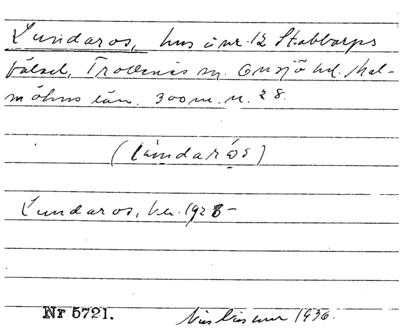 Lundaros, hus å nr. 12 Stabbarps
fäled, Trollenäs sn. Onsjö hd. Mal-
möhus län. 300 m. n. 28.
(lúndarós)
Lundaros, ber. 1926-
Nr 5721.
1936.